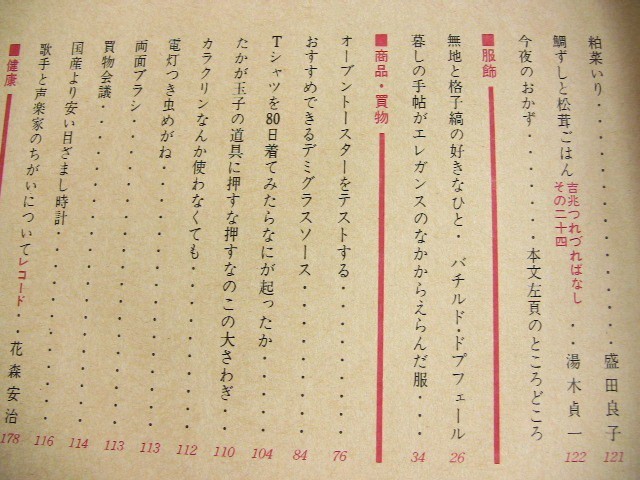 粕菜いり・・・・・・・・・・・・・・・盛田良子 121
鯛ずしと松茸ごはん 吉兆つれづればなし その二十四 ・・湯木貞一 122
今夜のおかず・・・・・・本文左頁のところどころ
■服飾
無地と格子縞の好きなひと・ バチルド・ドプフェール 26
暮しの手帖がエレガンスのなかからえらんだ服・・・ 34
■商品・買物
オーブントースターをテストする・・・・・・・・ 76
おすすめできるデミグラスソース・・・・・・・・ 84
Tシャツを80日着てみたらなにが起ったか・・・・ 104
たかが玉子の道具に押すな押すなのこの大さわぎ・・ 110
カラクリンなんか使わなくても・・・・・・・・・ 112
電灯つき虫めがね・・・・・・・・・・・・・・ 113
両面ブラシ・・・・・・・・・・・・・・・・・ 113
買物会議・・・・・・・・・・・・・・・・・・ 114
国産より安い目ざまし時計・・・・・・・・・・・ 116
歌手と声楽家のちがいについて レコード・・花森安治 178
■健康